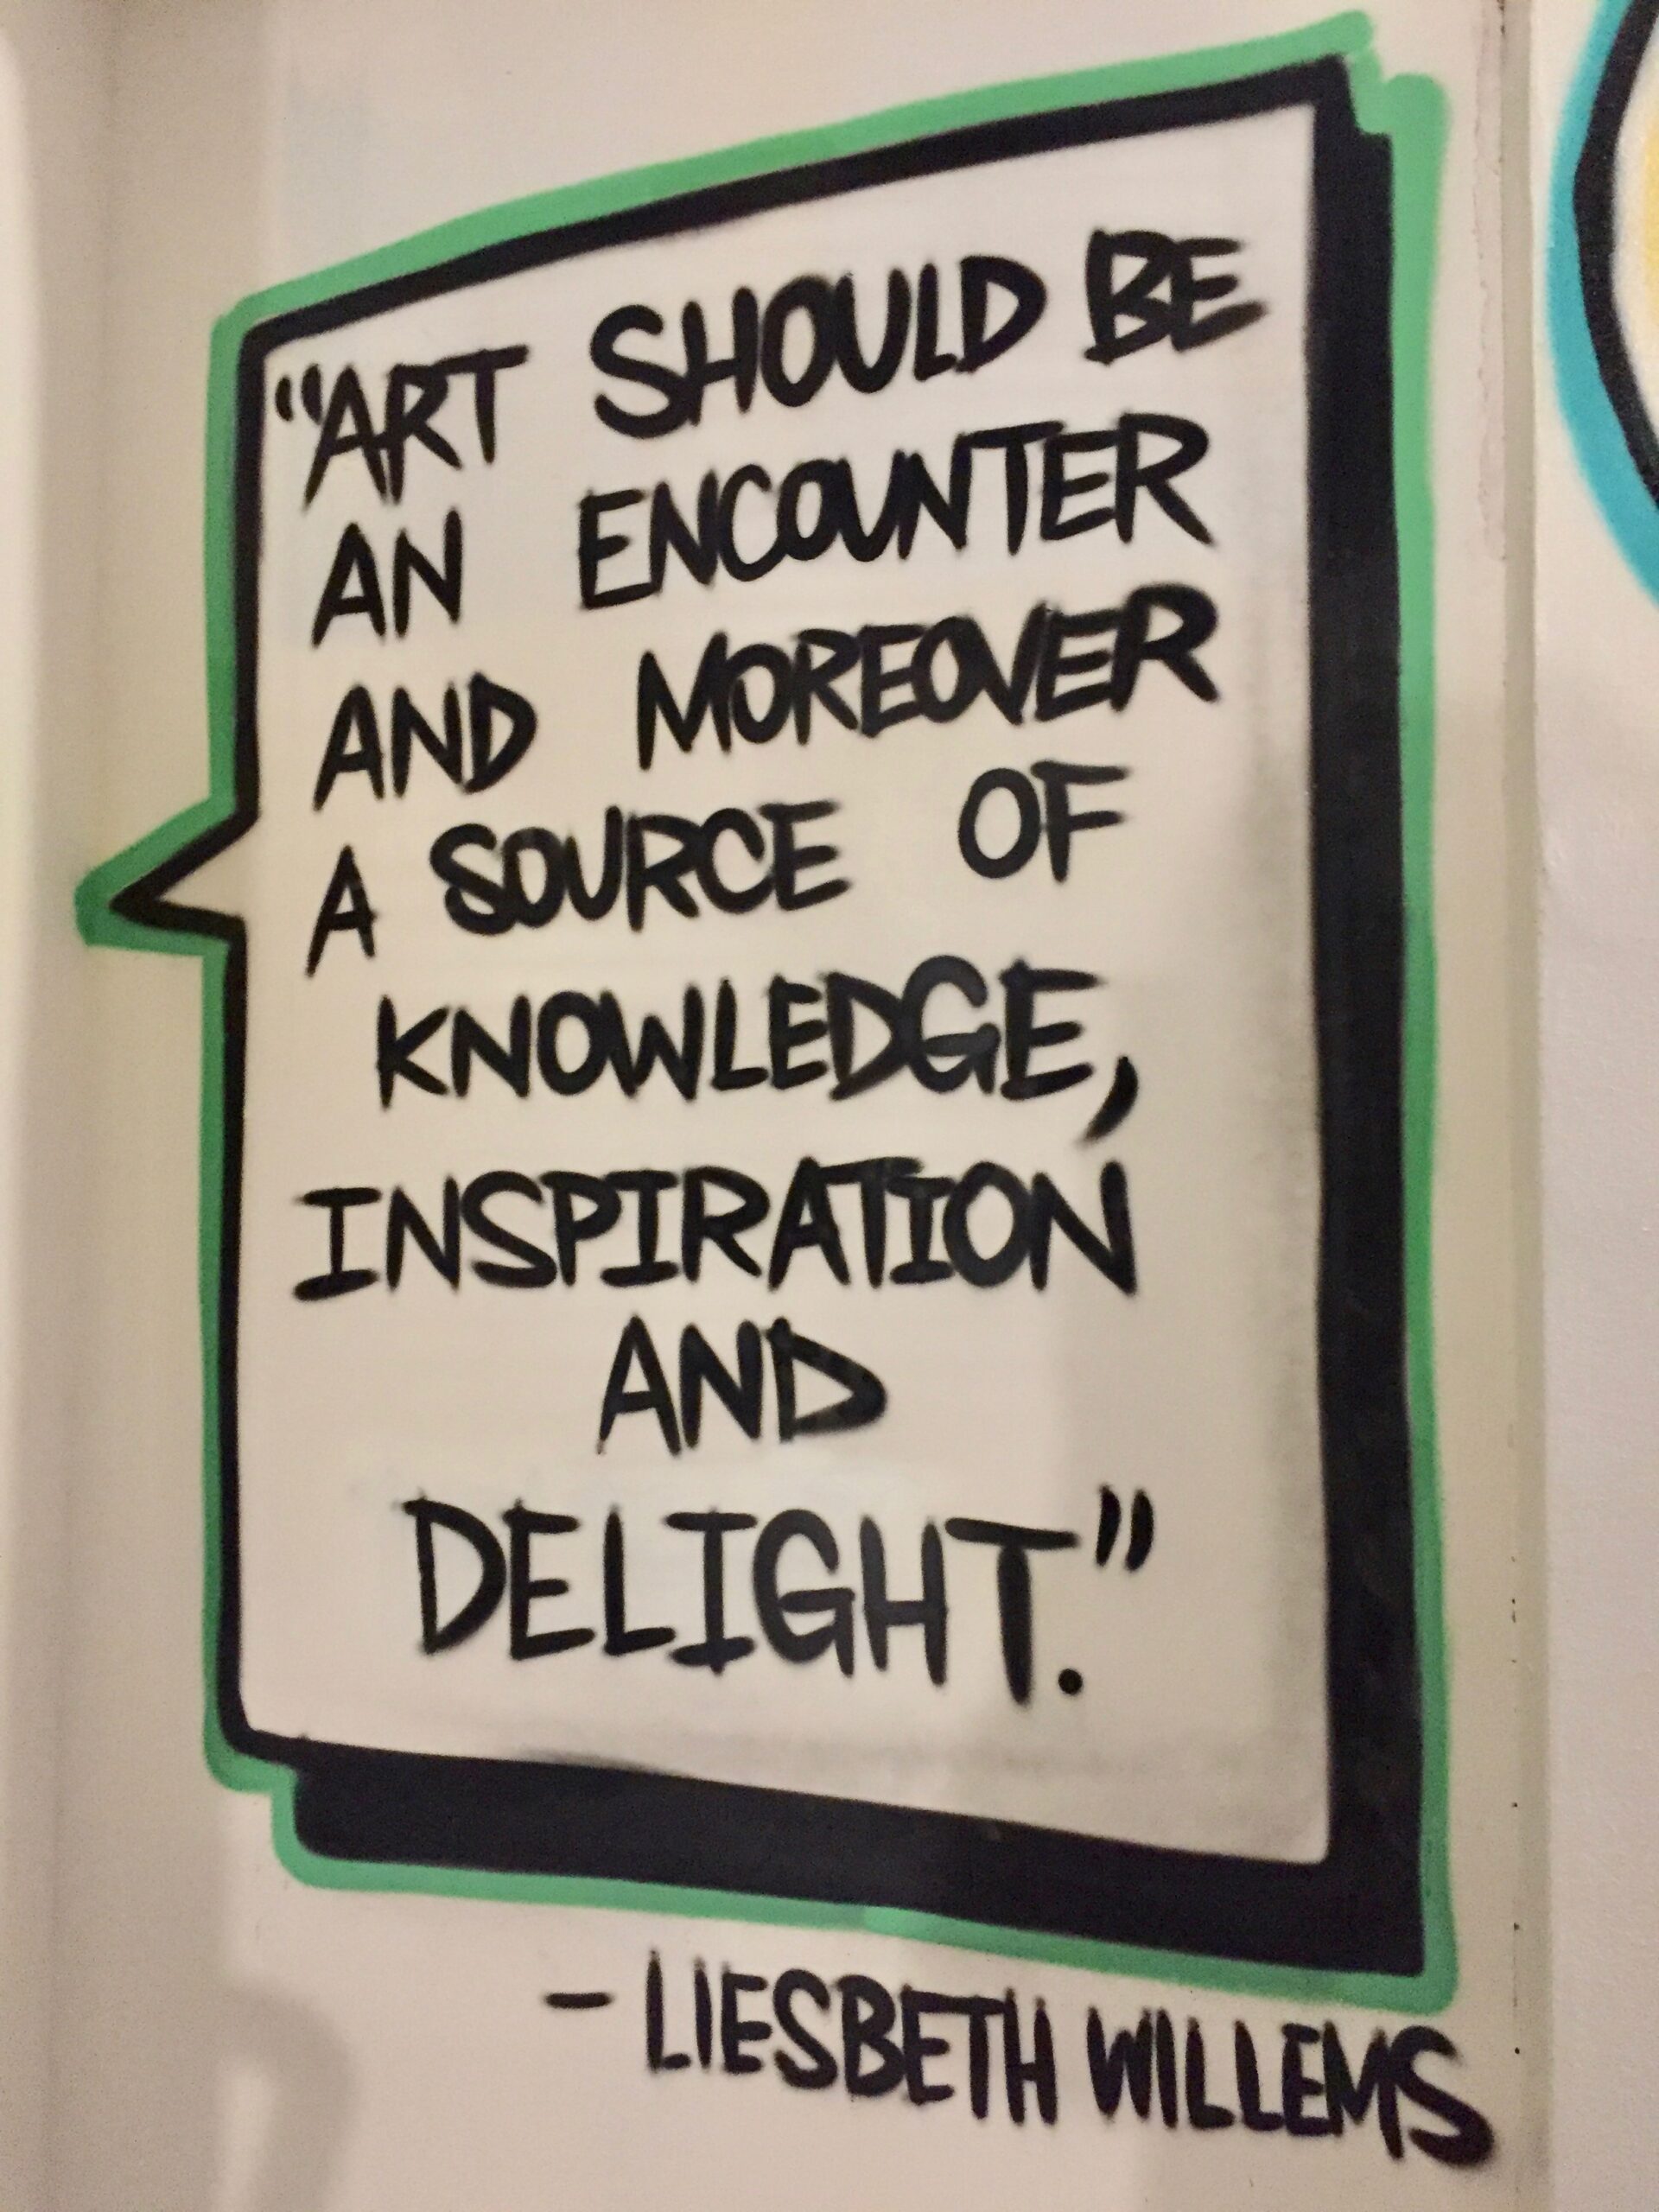 "ART SHOULD BE
AN ENCOUNTER
AND MOREOVER
A SOURCE OF
KNOWLEDGE,
INSPIRATION
AND
DELIGHT."
- LIESBETH WILLEMS